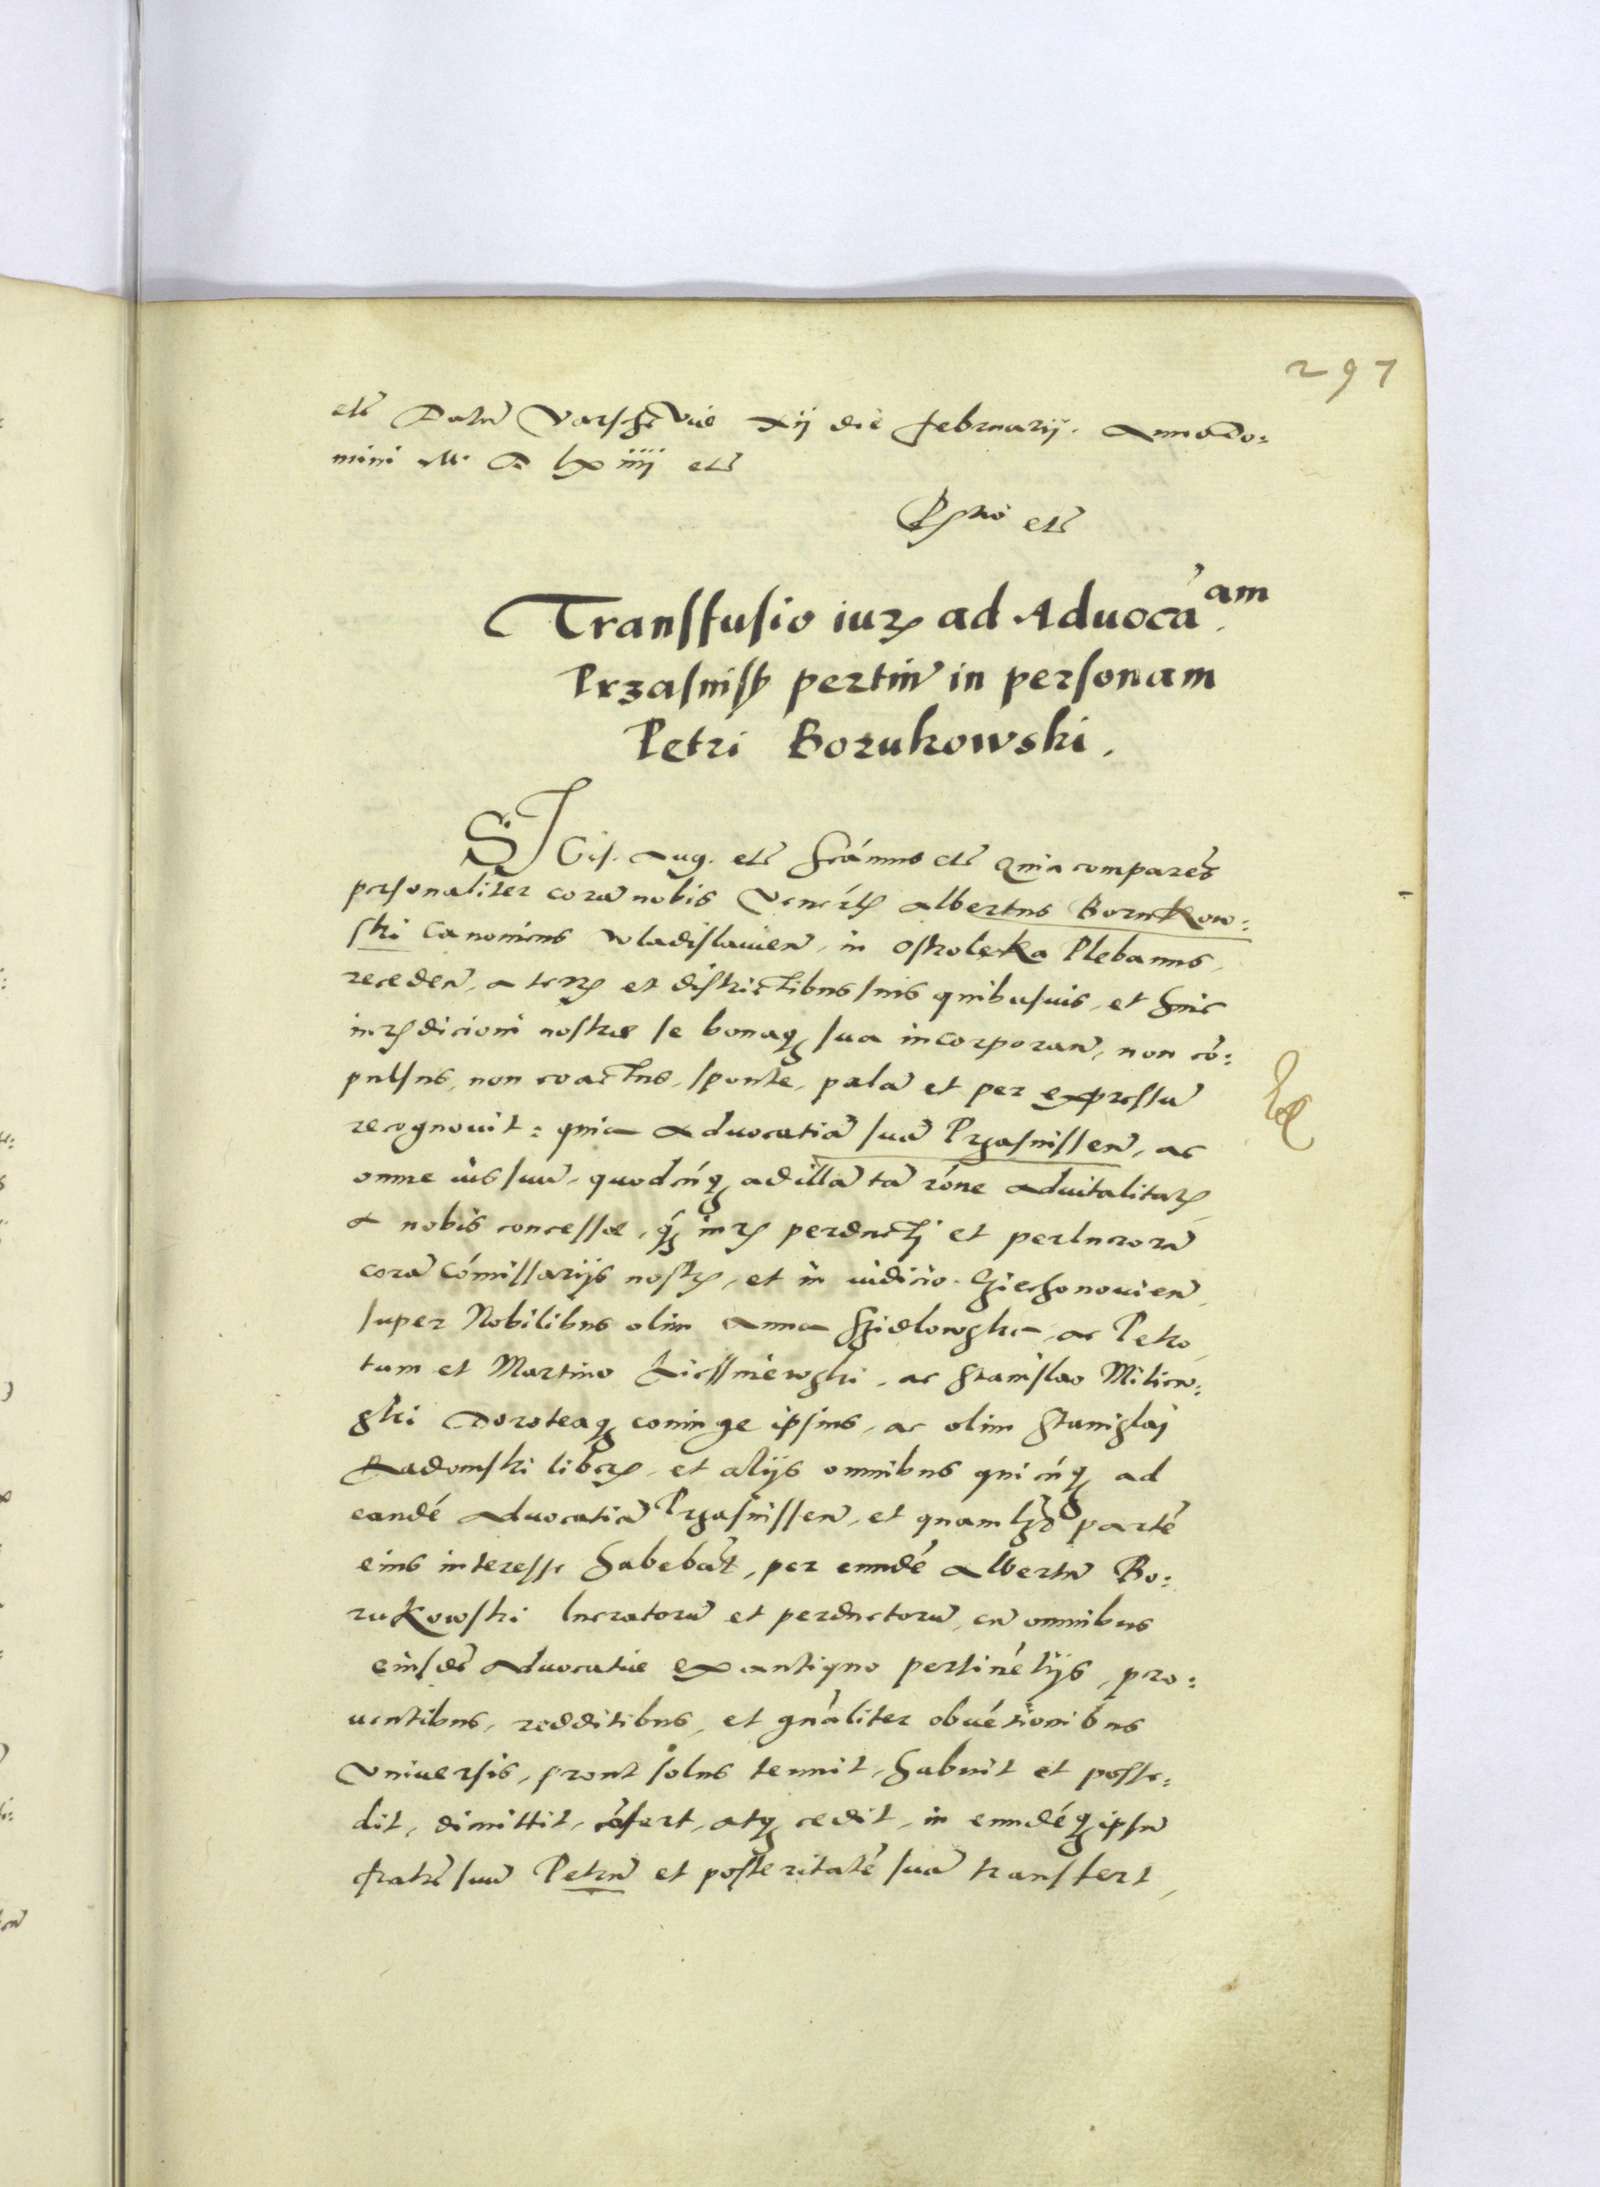 297
etc̃ Datũ Varschoviae xij die Februarij. Anno Do:
mini M. D. lxiiij etc̃
Rłtio etc̃
Transfusio iurꝭ ad Aduocaͣᵐ
Przasnisꝭ pertiñ in personam
Petri Borukowski.
SIGis. Aug. etc̃ Sc̃amus etc̃ Quia comparẽs
personaliter corã nobis Venẽrlꝭ Albertus Borukow:
ski Canonicus Wladislauieñ, in Ostroleka Plebanus,
recedeñ, a terrꝭ et districtibus suis quibusuis, et huic
iurꝭdicioni nostrae se bonaqꝫ sua incorporañ, non cõ:
pulsus, non coactus, sponte, palã et per expressũ
recognouit: quia Aduocatiã suã Przasnissen̄, ac
omne ius suũ, quodcũqꝫ ad illã tã rõne Aduitalitatꝭ
a nobis concessae, q̃ꝫ iurꝭ perducti et perlucrorũ
corã Cõmissarijs nostrꝭ, et in iudicio Ciechonouieñ,
super Nobilibus olim Anna Szidlowska, ac Petro
tum et Martino Liessniewski, ac Stanislao Miliew:
ski Doroteaqꝫ coniuge ipsius, ac olim Stanislaj
Radomski liberꝭ, et alijs omnibus quicũqꝫ ad
eandẽ Aduocatiã Przasnisseñ, et quamlꝫ partẽ
eius interesse habebãt, per eundẽ Albertũ Bo:
rukowski lucratorũ et perductorũ, cũ omnibus
eiusdẽ Aduocatiae ex antiquo pertinẽtijs, pro:
uentibus, redditibus, et gnãliter obuẽtionibus
Vniuersis, prout solus tenuit, habuit et posse:
dit, dimittit, cõfert, atqꝫ cedit, in eundẽqꝫ ipsũ
fratrẽ suũ Petrũ et posteritatẽ suã transfert,